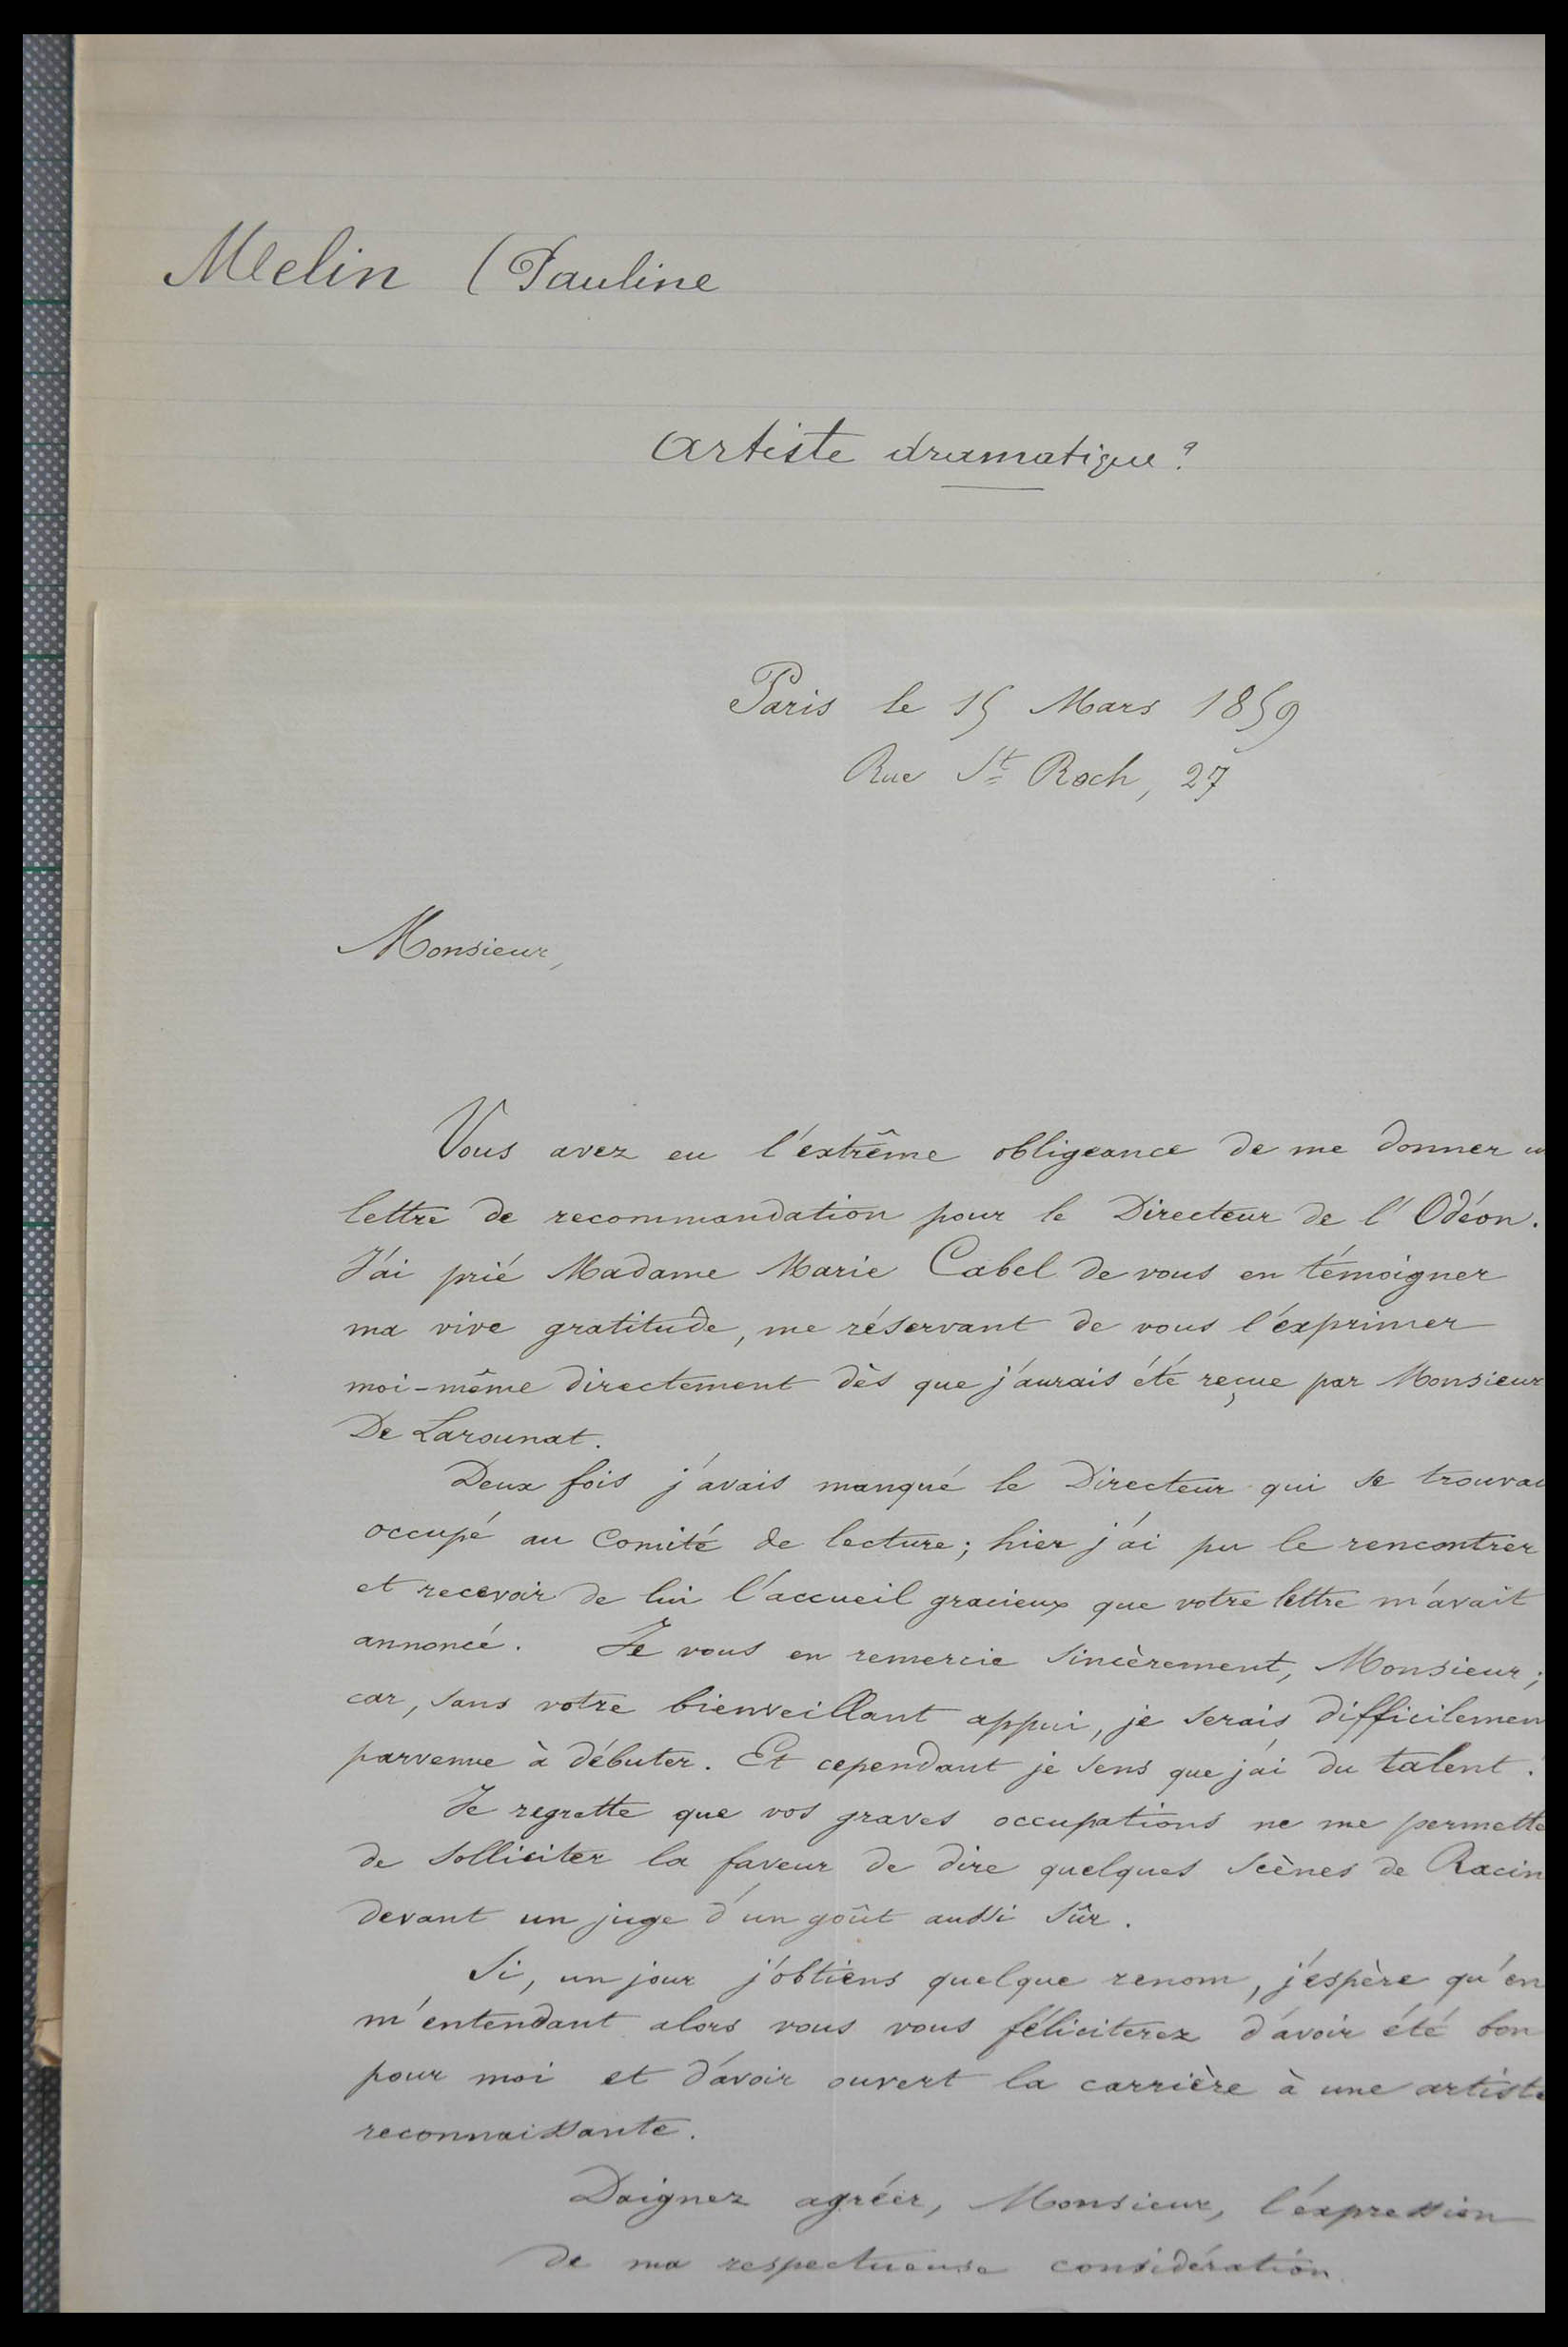 Melin (Pauline
Artiste dramatique?
Paris le 15 Mars 1859
Rue St Roch, 27
Monsieur,
Vous avez eu l'extrême obligeance de me donner
lettre de recommandation pour le Directeur de l'Odéon.
J'ai prié Madame Marie Cabel de vous en témoigner
ma vive gratitude, me réservant de vous l'exprimer
moi-même directement dès que j'aurais été reçue par Monsieur
De Larounat.
Deux fois j'avais manqué le Directeur qui se trouvai
occupé au Comité de lecture; hier j'ai pu le rencontrer
et recevoir de lui l'accueil gracieux que votre lettre m'avait
annoncé. Je vous en remercie sincèrement, Monsieur;
car, sans votre bienveillant appui, je serais difficilemen
parvenue à débuter. Et cependant je sens que j'ai du talent.
Je regrette que vos graves occupations ne me permette
de solliciter la faveur de dire quelques scènes de Racin
devant un juge d'un goût aussi sûr.
Si, un jour j'obtiens quelque renom, j'espère qu'en
m'entendant alors vous vous féliciterez d'avoir été bon
pour moi et d'avoir ouvert la carrière à une artiste
reconnaissante.
Daignez agréer, Monsieur, l'expression
de ma respectueuse considération.